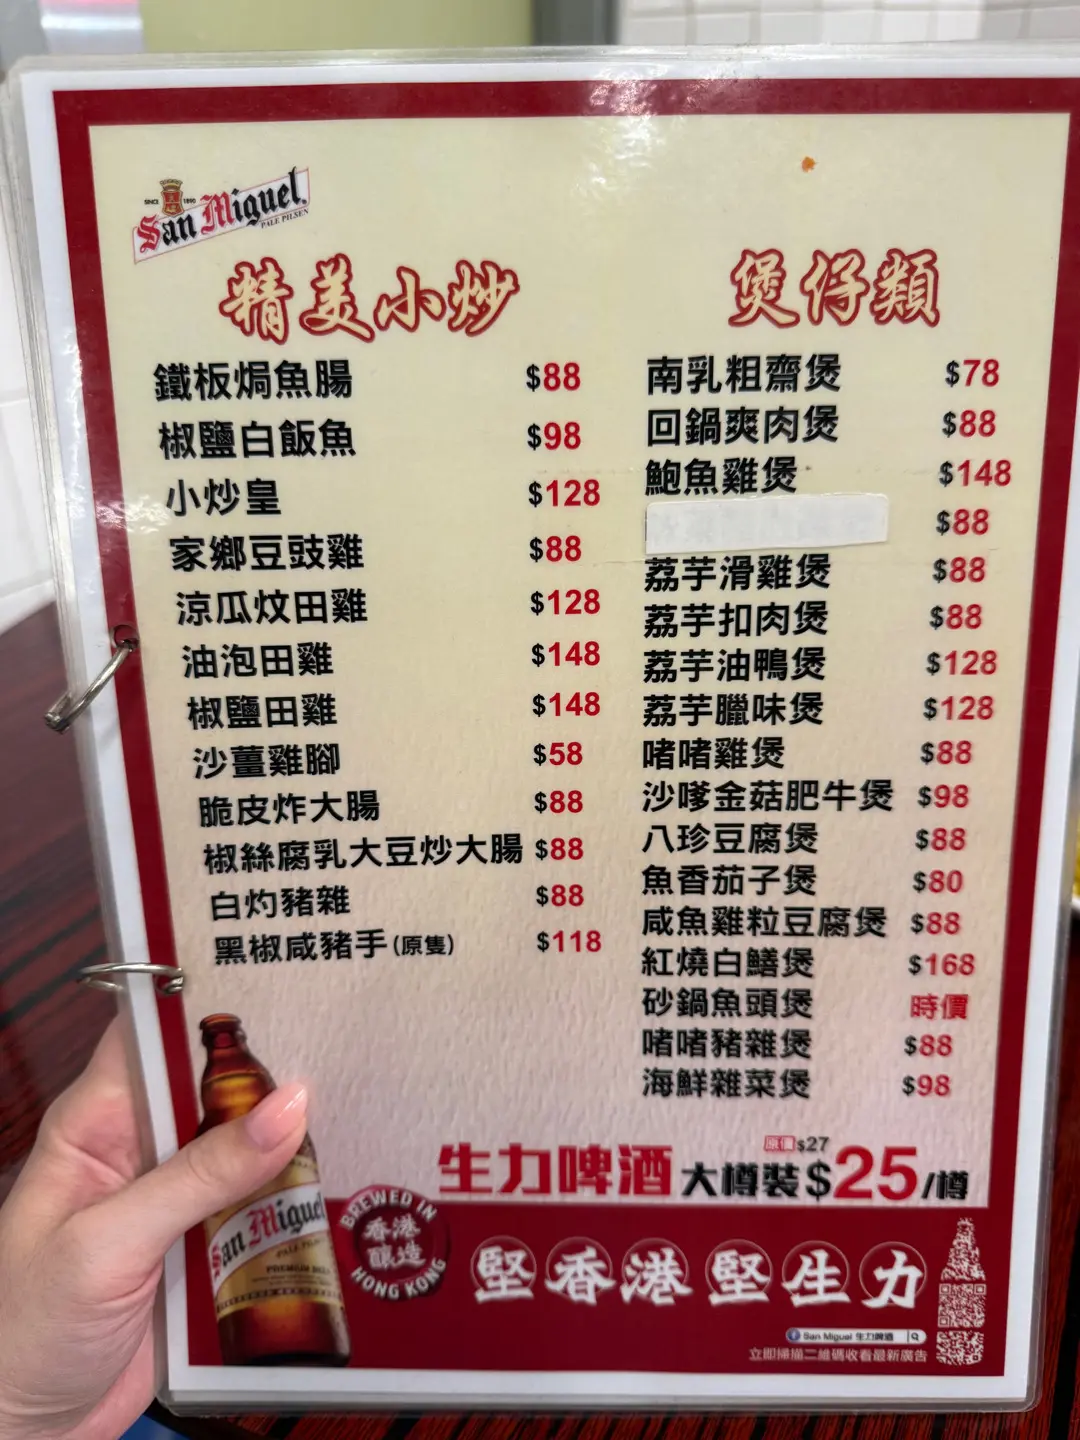 SINCE 1890
San Miguel
PALE PILSEN
精美小炒
鐵板焗魚腸 $88
椒鹽白飯魚 $98
小炒皇 $128
家鄉豆豉雞 $88
涼瓜炆田雞 $128
油泡田雞 $148
椒鹽田雞 $148
沙薑雞腳 $58
脆皮炸大腸 $88
椒絲腐乳大豆炒大腸 $88
白灼豬雜 $88
黑椒咸豬手(原隻) $118
煲仔類
南乳粗齋煲 $78
回鍋爽肉煲 $88
鮑魚雞煲 $148
$88
荔芋滑雞煲 $88
荔芋扣肉煲 $88
荔芋油鴨煲 $128
荔芋臘味煲 $128
啫啫雞煲 $88
沙嗲金菇肥牛煲 $98
八珍豆腐煲 $88
魚香茄子煲 $80
咸魚雞粒豆腐煲 $88
紅燒白鱔煲 $168
砂鍋魚頭煲 時價
啫啫豬雜煲 $88
海鮮雜菜煲 $98
原價 $27
生力啤酒 大樽裝 $25/樽
San Miguel
PALE PILSEN
BREWED IN
香港
釀造
HONG KONG
堅香港 堅生力
San Miguel 生力啤酒
立即掃描二維碼收看最新廣告